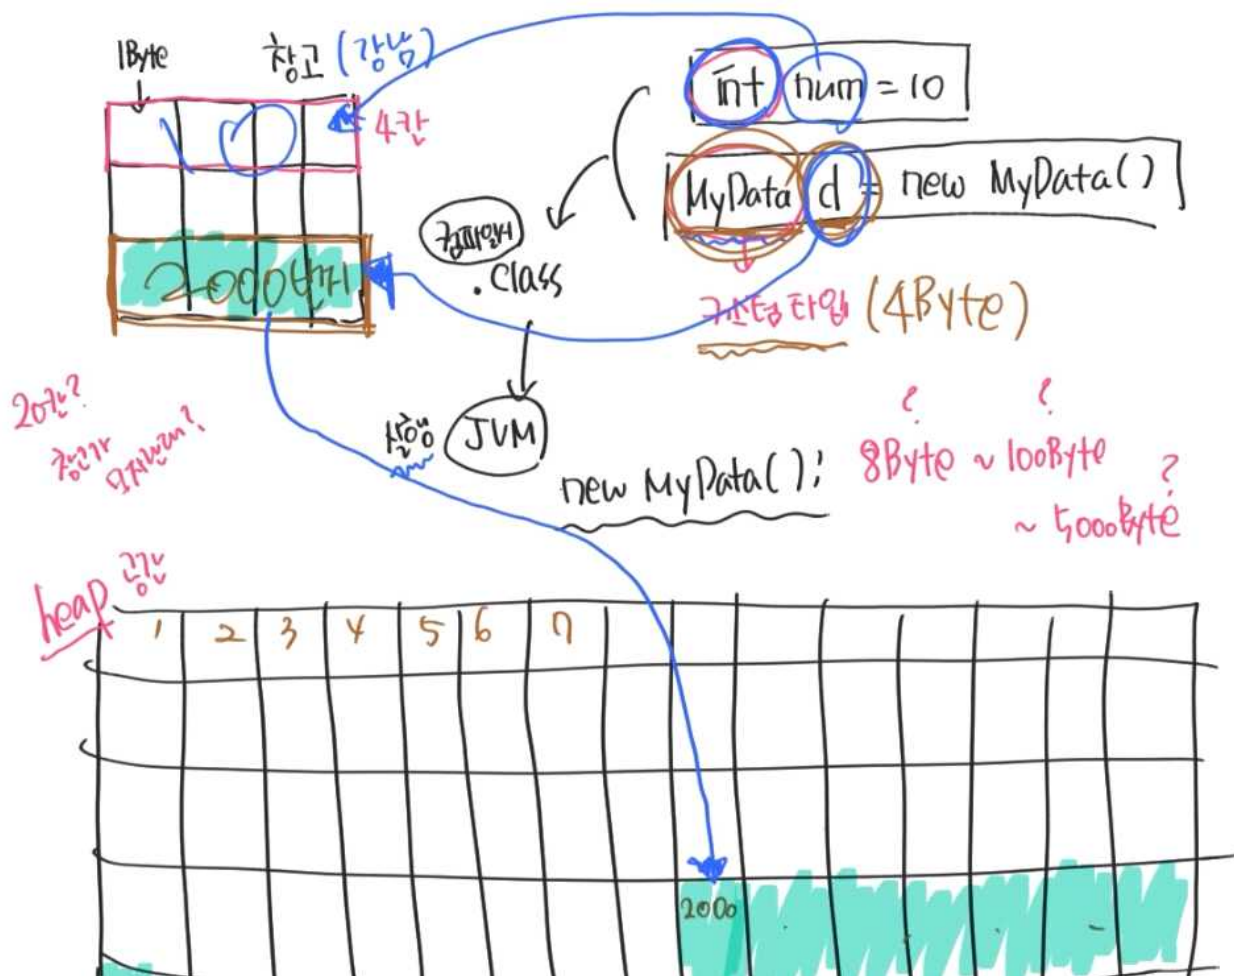 1Byte
창고 (강남)
int num = 10
10
4칸
MyData d = new MyData()
컴파일시
.class
2000번지
커스텀 타입 (4Byte)
20칸?
창고가
모자란데?
실행
JVM
new MyData();
8Byte ~ 100Byte
~ 5000Byte
? ? ?
heap 공간
1 2 3 4 5 6 7
2000